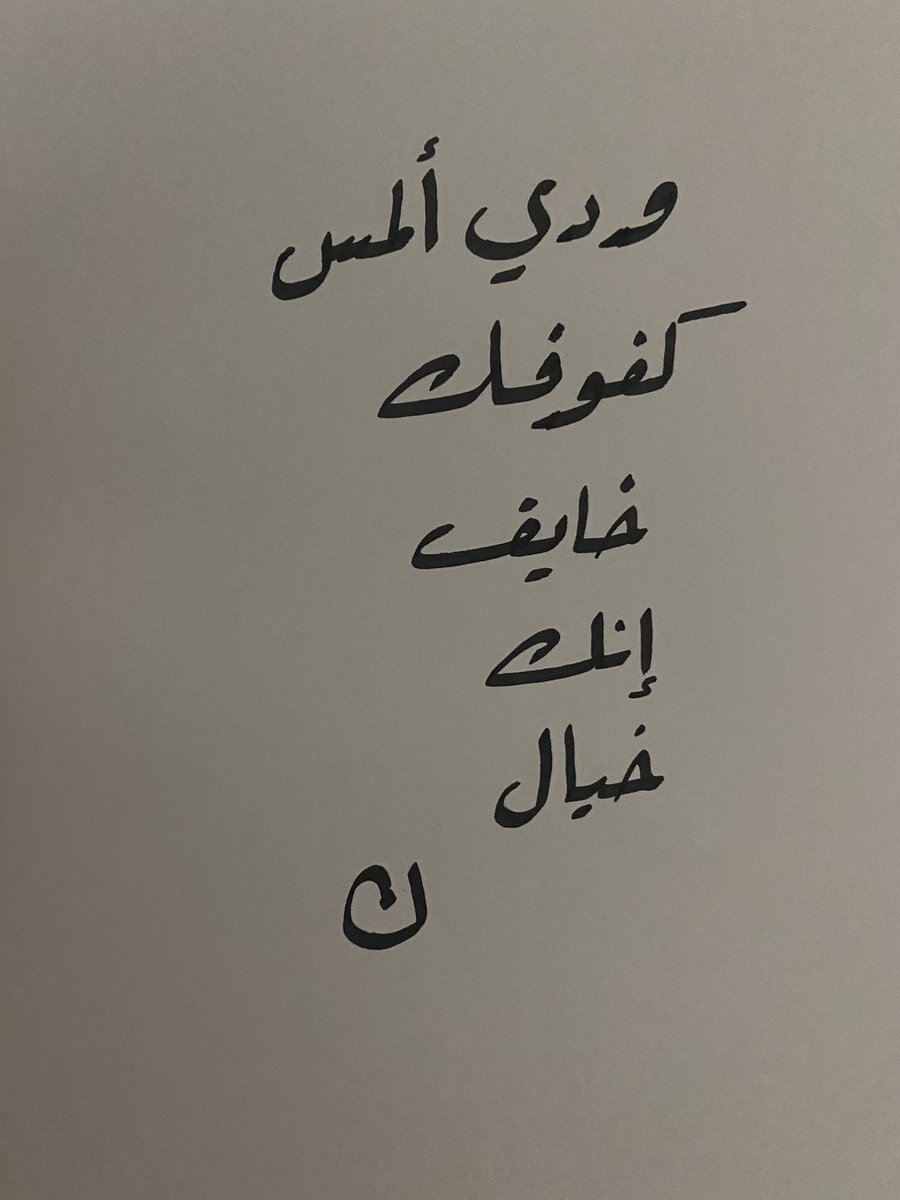 ودي ألمس
كفوفك
خايف
إنك
خيال
ن